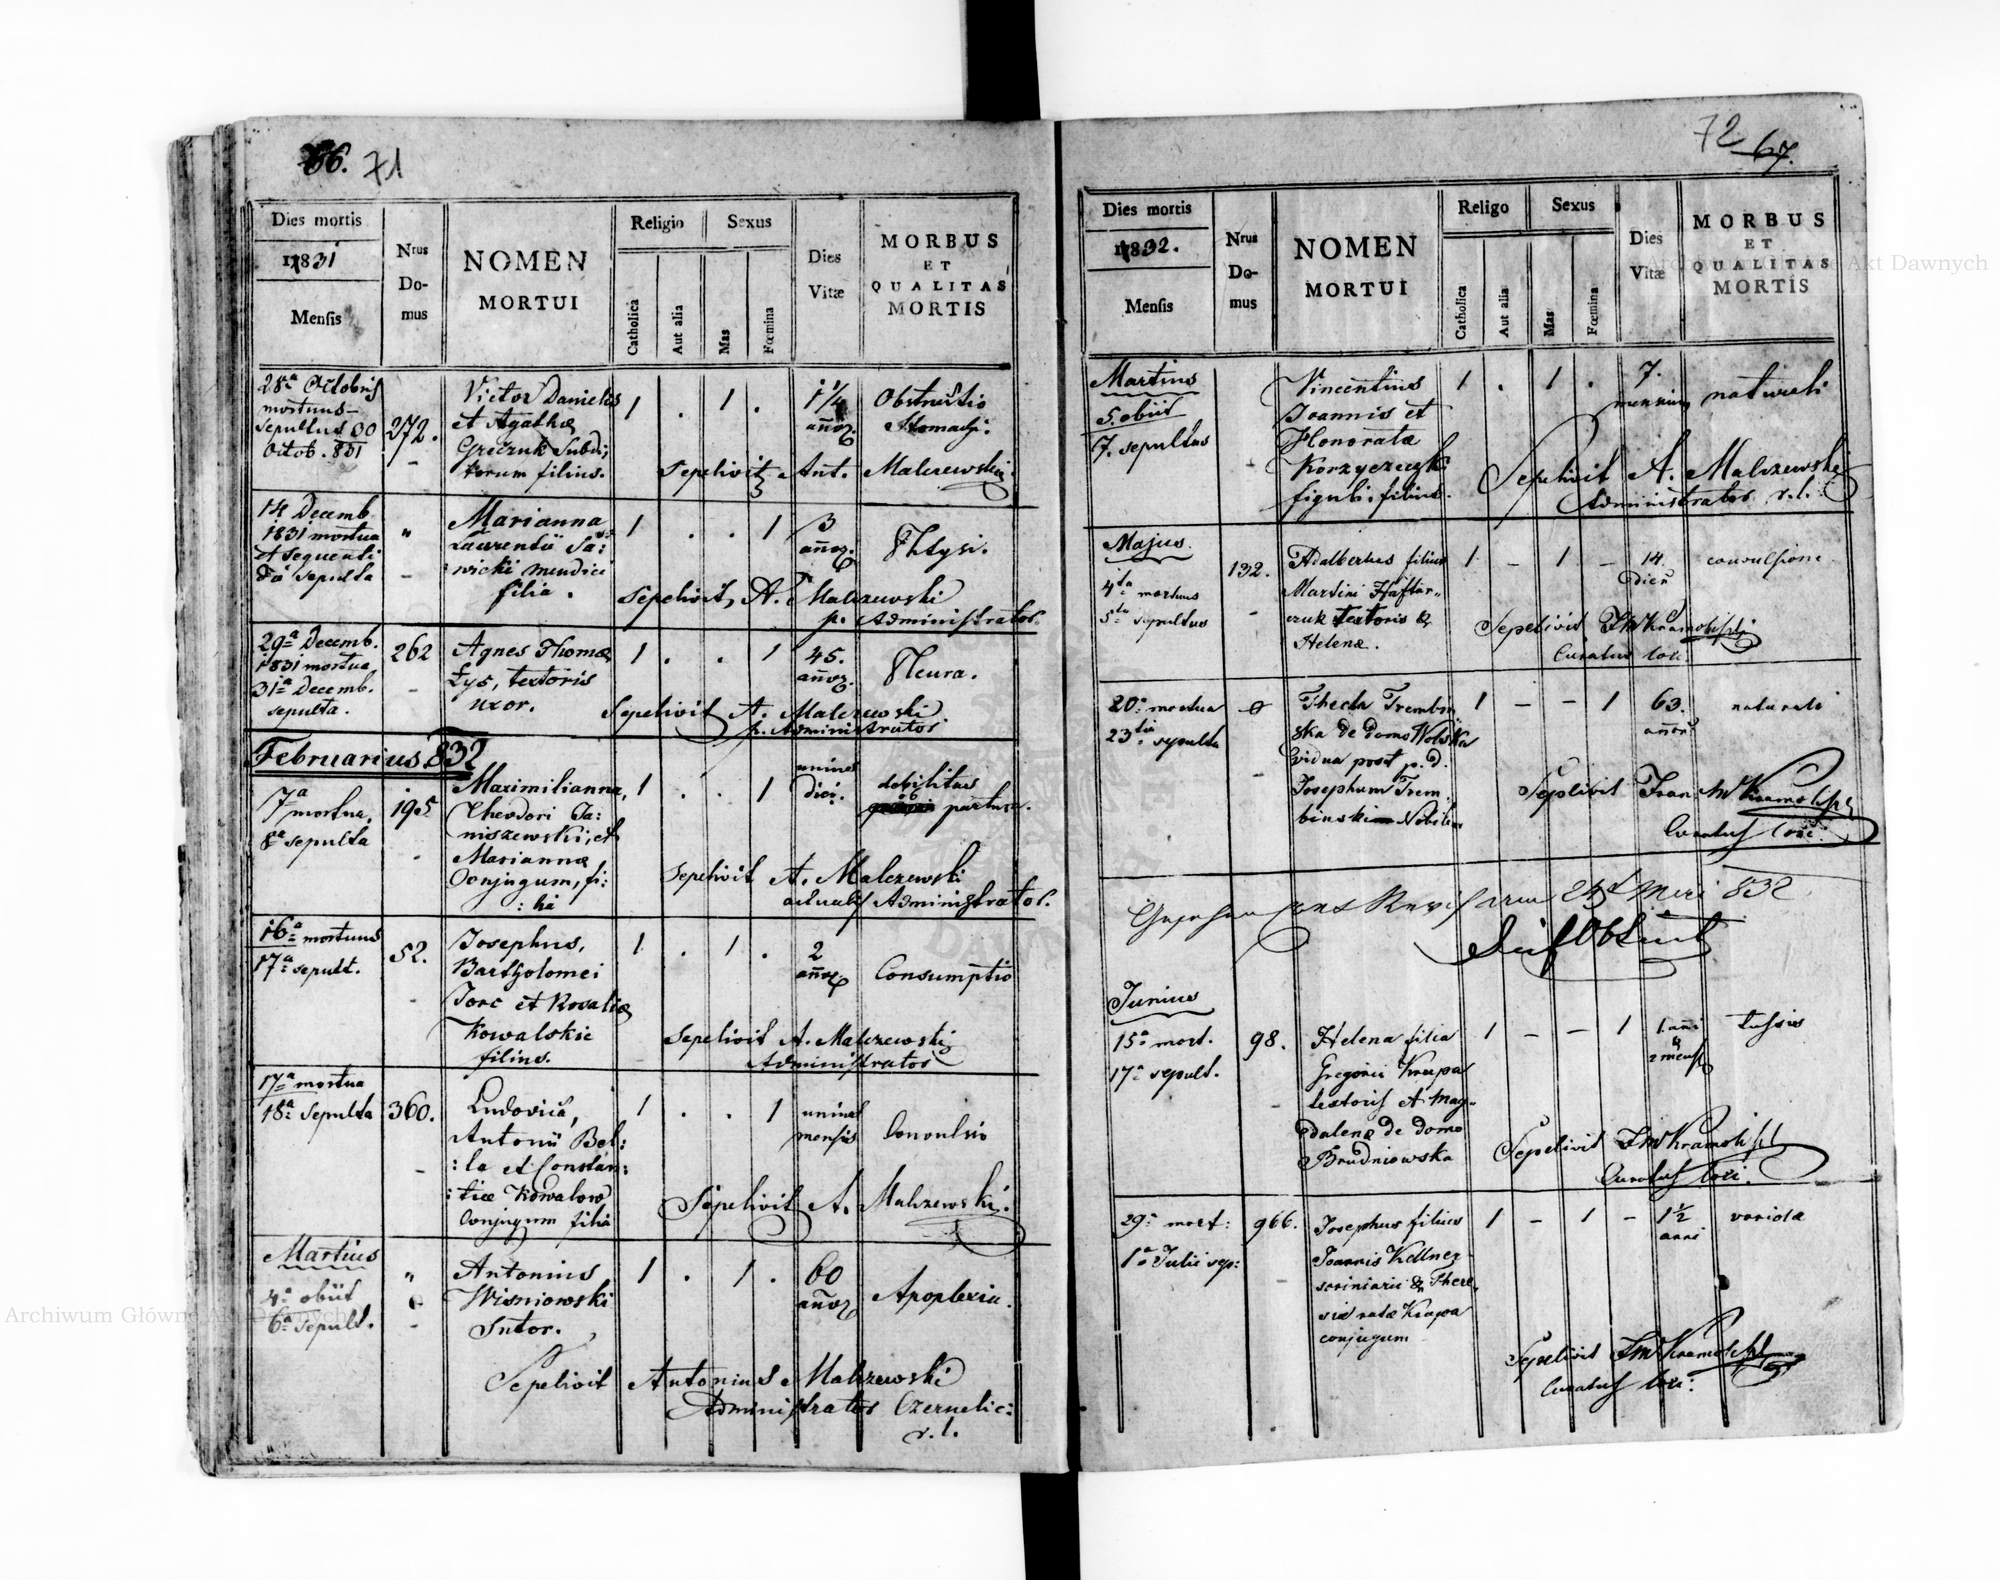 66. 71
Dies mortis
1831
Mensis
Nrus
Do-
mus
NOMEN
MORTUI
Religio
Catholica
Aut alia
Sexus
Mas
Fœmina
Dies
Vitæ
MORBUS
ET
QUALITAS
MORTIS
28a Octobris
mortuus
sepultus 30
Octob. 831
272.
Victor Danielis
et Agathæ
Greczuk Subdi;
torum filius.
1 . 1 .
1 1/4
Obstructio
Stomachi.
Sepelivit Ant. Malczewski
14 Decemb.
1831 mortua
et sequenti
sepulta
"
Marianna
Laurentii Sa:
wicki mendici
filia.
1 . . 1
3
Phtysi.
Sepelivit A. Malczewski
p. Administrator.
29a Decemb.
1831 mortua
31a Decemb.
sepulta.
262
Agnes Thomæ
Łys, textoris
uxor.
1 . . 1
45.
Pleura.
Sepelivit A. Malczewski
p. Administrator.
Februarius 832
7a mortua,
8a sepulta
195
Maximilianna,
Theodori Ja:
niszewski, et
Mariannæ
Conjugum, fi:
: lia
1 . . 1
unius
diei.
debilitas
ob partum.
Sepelivit A. Malczewski
actualis Administrator.
16a mortuus
17a sepult.
52.
Josephus,
Bartholomei
Jorc et Rosaliæ
Kowalskie
filius.
1 . 1 .
2
Consumptio
Sepelivit A. Malczewski
Administrator
17a mortua
18a Sepulta
360.
Ludovica,
Antonii Bel:
: la et Constan:
: tiæ Kowalow
Conjugum filia
1 . . 1
unius
mensis
Convulsio
Sepelivit A. Malczewski.
Martius
4a obiit
6a sepult.
"
Antonius
Wisniowski
Sutor.
1 . 1 .
60
Apoplexia.
Sepelivit Antonius Malczewski
Administrator Czernelic:
r. l.
72 67.
Dies mortis
1832.
Mensis
Nrus
Do-
mus
NOMEN
MORTUI
Religo
Catholica
Aut alia
Sexus
Mas
Fœmina
Dies
Vitæ
MORBUS
ET
QUALITAS
MORTIS
Martius
5. obiit
7. sepultus
Vincentius
Joannis et
Honoratæ
figuli filius.
1 . 1 .
7.
mensium
naturali
Sepelivit A. Malczewski
Administrator r.l.
Majus
4ta mortuus
5ta sepultus
132.
Adalbertus filius
Martini Haftar-
czuk textoris &
Helenæ.
1 - 1 -
14
dier
convulsione
Sepelivit
Curatus loci.
20a mortua
23tia sepulta
Thecla Trembin
ska de domo Wolska
vidua post p. d.
Josephum Trem
binski Nobilem
1 - - 1
63.
naturali
Sepelivit
Curatus loci.
832
Junius
15a mort.
17a sepult.
98.
Helena filia
Gregorii Krupa
textoris et Mag-
dalenæ de domo
Brudniowska
1 - - 1
1 ani
&
2 mens
tussis
Sepelivit
Curatus loci.
29a mort:
1a Julii sep:
966.
Josephus filius
Joannis Kellner
scriniarii & There
siæ natæ Krapa
conjugum
1 - 1 -
1 1/2
anni
Sepelivit
Curatus loci:
Archiwum Główne Akt Dawnych
Archiwum Główne Akt Dawnych